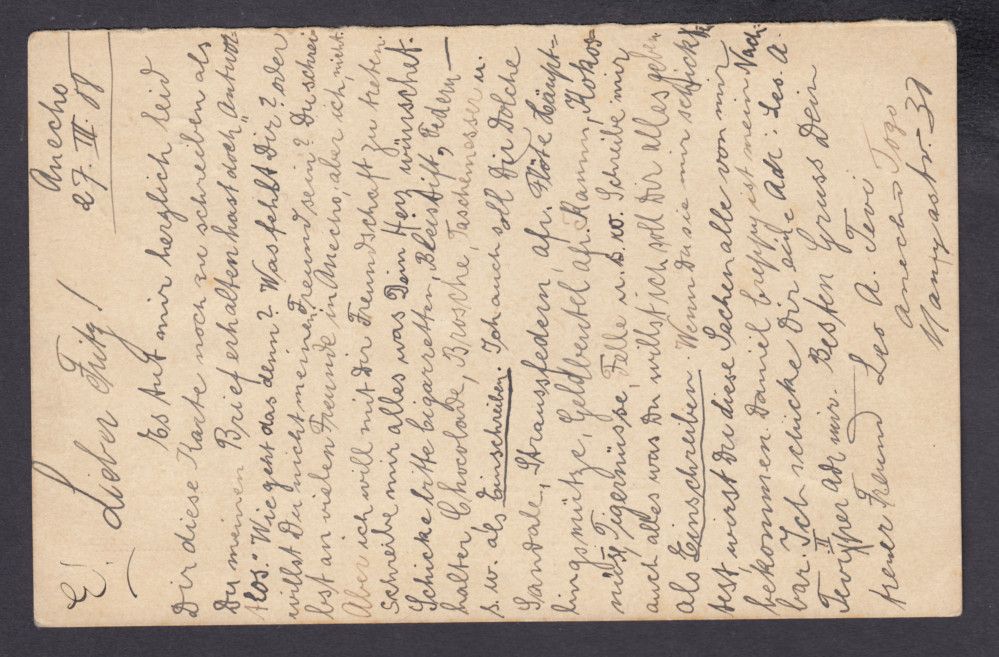 Anecho
27. VI. 08
E! Lieber Fritz!
Es tut mir herzlich leid
Dir diese Karte noch zu schreiben als
Du meinen Brief erhalten hast doch „Antwor
tlos." Wie geht das denn? Was fehlt Dir? oder
willst Du nicht meinen Freund sein? Du schrei-
bst an vielen Freunde in Anecho, aber ich nicht.
Aber ich will mit Dir Freundschaft zu treten.
Schreibe mir alles was Dein Herz wünschet.
Schicke bitte Cigarretten, Bleistift, Federn-
halter, Chocolade, Brosche, Taschenmesser u.
s. w. als Einschreiben. Ich auch soll Dir Dolche
Sandale, Straussfedern, afr. Flöte Häupt-
lingsmütze, Geldbeutel afr. Kamm, Kokos-
nüss, Tigernüsse, Felle u. s. w. Schreibe mir
auch alles was Du willst ich soll Dir alles geben
als Einschreiben. Wenn Du sie mir schickk
test wirst Du diese Sachen alle von mir
bekommen. Daniel Creppy ist mein Nach-
bar. Ich schicke Dir eine Adr: Leo. A.
Tevi II per adr mir. Besten Gruss Dein
treuer Freund Leo A. Tevi
Anecho Togo